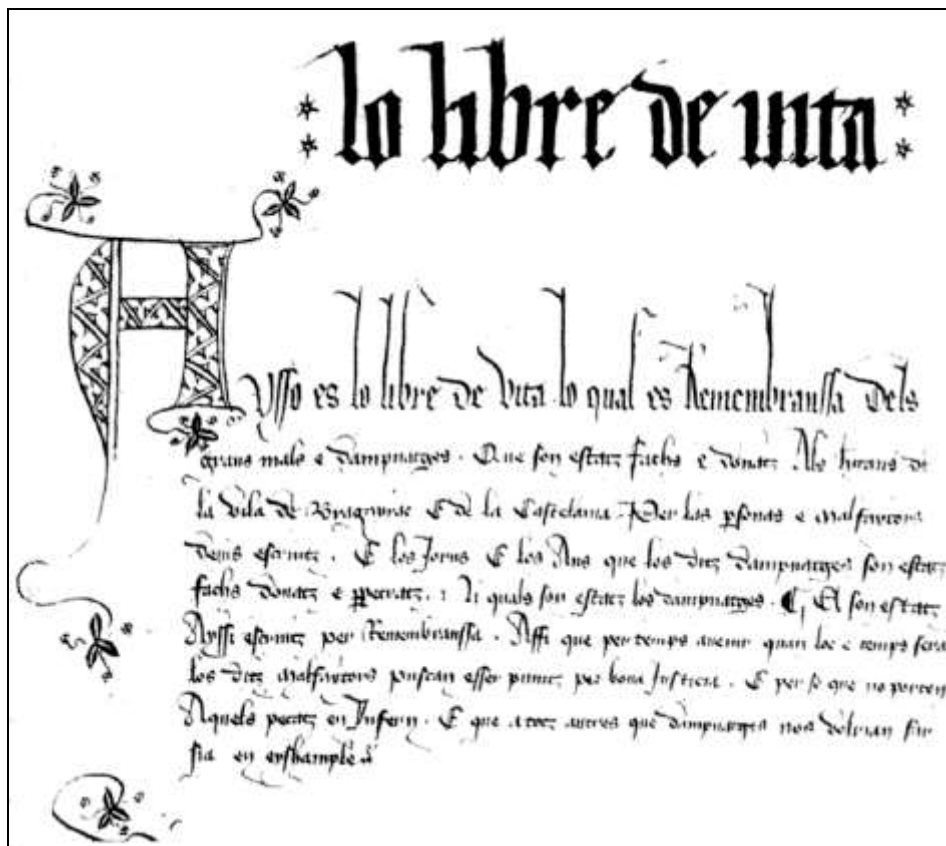 lo libre de vita
Aysso es lo libre de Vita lo qual es Remembranssa Dels
grans mals e dampnatges . Que son estatz fachs e donatz Als hitans de
la Vila de Bragayrac E de la Castelania . Per las psonas e malfaytors
deius escriutz . E los Jorns E los Ans que los ditz dampnatges son estatz
fachs donatz e ppetratz . : Ni quals son estatz los dampnatges . El son estatz
Ayssi escriutz per Remembranssa . Affi que per temps avenir quan loc e temps sera
los ditz malfaytors puscan esser punitz per bona Justicia . E per so que no porten
Aquels pecatz en Yffern . E que a totz autres que dampnatges nos volrian far
sia en eyshample